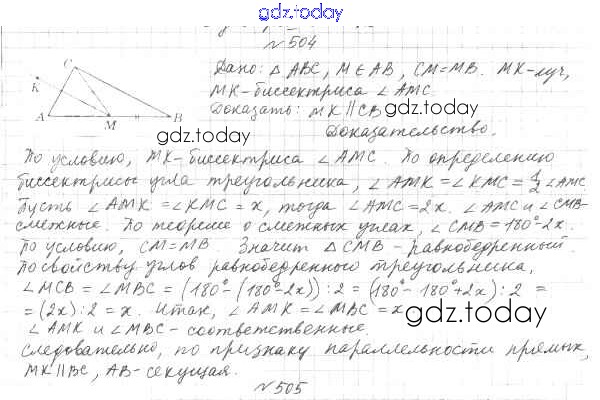 gdz.today
№504
C
K
A
M
B
Дано: △ ABC, M ∈ AB, CM=MB. MK-луч,
MK-биссектриса ∠AMC.
Доказать: MK∥CB
gdz.today
gdz.today
Доказательство.
По условию, MK-биссектриса ∠AMC. По определению
биссектрисы угла треугольника, ∠AMK=∠KMC=1/2∠AMC
Пусть ∠AMK=∠KMC=x, тогда ∠AMC=2x. ∠AMC и ∠CMB-
смежные. По теореме о смежных углах, ∠CMB=180°-2x.
По условию, CM=MB. Значит △CMB-равнобедренный.
По свойству углов равнобедренного треугольника,
∠MCB=∠MBC=(180°-(180°-2x)):2=(180°-180°+2x):2=
=(2x):2=x. Итак, ∠AMK=∠MBC=x
gdz.today
∠AMK и ∠MBC-соответственные.
gdz.today
Следовательно, по признаку параллельности прямых,
MK∥BC, AB-секущая.
№505